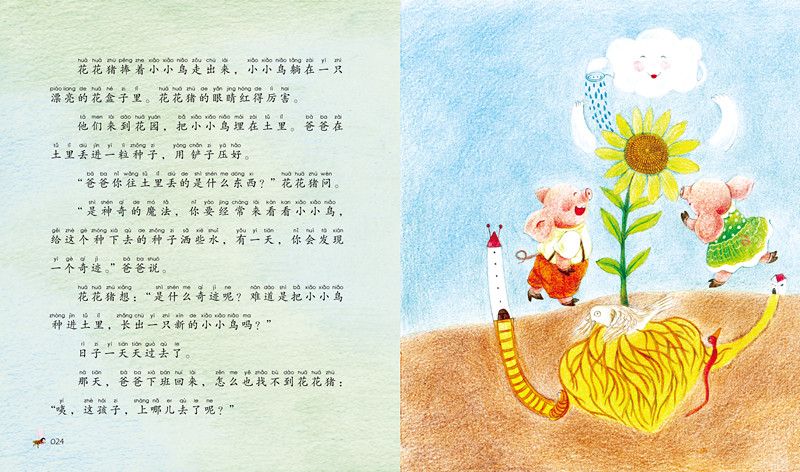 huā huā zhū pěng zhe xiǎo xiǎo niǎo zǒu chū lái xiǎo xiǎo niǎo tǎng zài yì zhī
花花猪捧着小小鸟走出来，小小鸟躺在一只
piào liang de huā hé zi lǐ huā huā zhū de yǎn jing hóng de lì hai
漂亮的花盒子里。花花猪的眼睛红得厉害。
tā men lái dào huā yuán bǎ xiǎo xiǎo niǎo mái zài tǔ lǐ bà ba zài
他们来到花园，把小小鸟埋在土里。爸爸在
tǔ lǐ diū jìn yí lì zhǒng zi yòng chǎn zi yā hǎo
土里丢进一粒种子，用铲子压好。
bà ba nǐ wǎng tǔ lǐ diū de shì shén me dōng xi huā huā zhū wèn
“爸爸你往土里丢的是什么东西？”花花猪问。
shì shén qí de mó fǎ nǐ yào jīng cháng lái kàn kan xiǎo xiǎo niǎo
“是神奇的魔法，你要经常来看看小小鸟，
gěi zhè ge zhòng xià qù de zhǒng zi sǎ xiē shuǐ yǒu yì tiān nǐ huì fā xiàn
给这个种下去的种子洒些水，有一天，你会发现
yí gè qí jì bà ba shuō
一个奇迹。”爸爸说。
huā huā zhū xiǎng shì shén me qí jì ne nán dào shì bǎ xiǎo xiǎo niǎo
花花猪想：“是什么奇迹呢？难道是把小小鸟
zhòng jìn tǔ lǐ zhǎng chū yì zhī xīn de xiǎo xiǎo niǎo ma
种进土里，长出一只新的小小鸟吗？”
rì zi yì tiān tiān guò qù le
日子一天天过去了。
nà tiān bà ba xià bān huí lái zěn me yě zhǎo bú dào huā huā zhū
那天，爸爸下班回来，怎么也找不到花花猪：
yí zhè hái zi shàng nǎ er qù le ne
“咦，这孩子，上哪儿去了呢？”
024